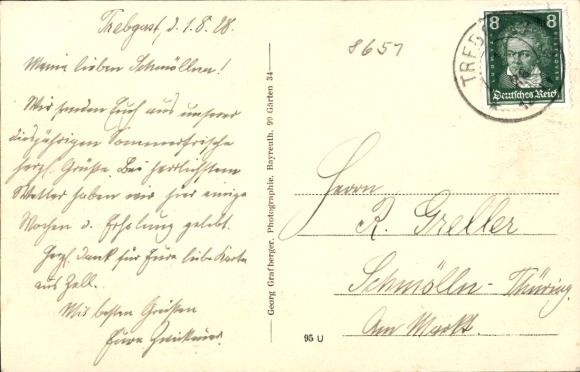 Trebgast, d. 1.8.28.
Meine lieben Schmöllner!
Wir senden Euch aus unserer
diesjährigen Sommerfrische
herzl. Grüße. Bei herrlichstem
Wetter haben wir hier einige
Wochen d. Erholung gelebt.
Herzl. Dank für Eure liebe Karte
aus Zell.
Mit besten Grüßen
Eure Zwickauer.
Georg Grafberger, Photographie, Bayreuth, 99 Gärten 34
8651
8 8
LUDWIG BEETHOVEN
Deutsches Reich
TREB
Herrn
R. Greller
Schmölln-Thüring.
Am Markt.
95 U